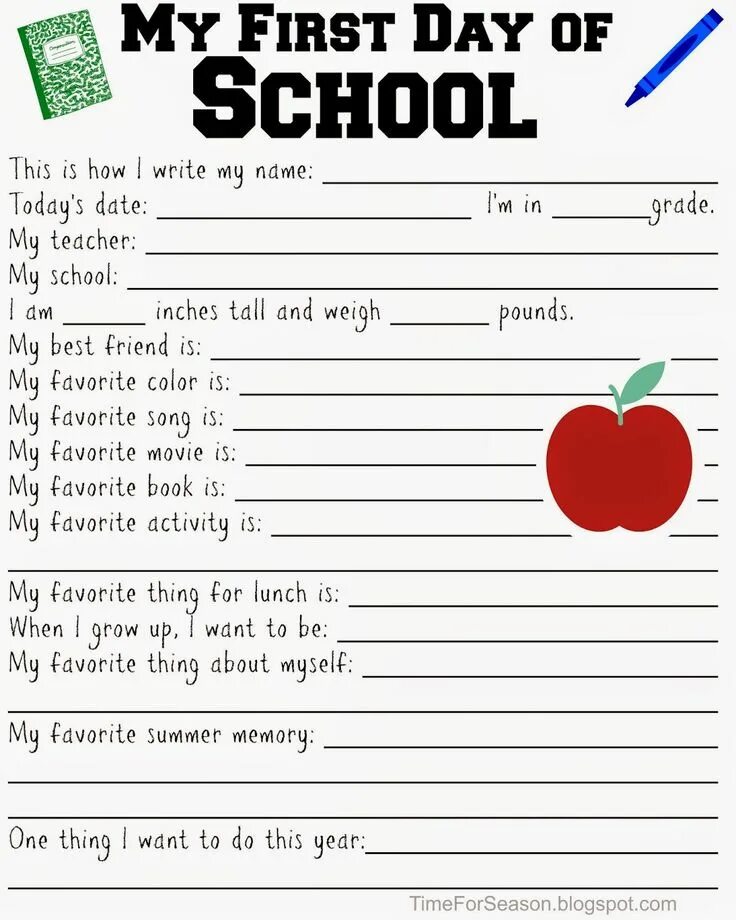 My First Day of
School
Composition
This is how I write my name: ____
Today's date: ____ I'm in ____grade.
My teacher: ____
My school: ____
I am ____ inches tall and weigh ____ pounds.
My best friend is: ____
My favorite color is: ____
My favorite song is: ____
My favorite movie is: ____
My favorite book is: ____
My favorite activity is: ____
My favorite thing for lunch is: ____
When I grow up, I want to be: ____
My favorite thing about myself: ____
My favorite summer memory: ____
One thing I want to do this year:____
TimeForSeason.blogspot.com